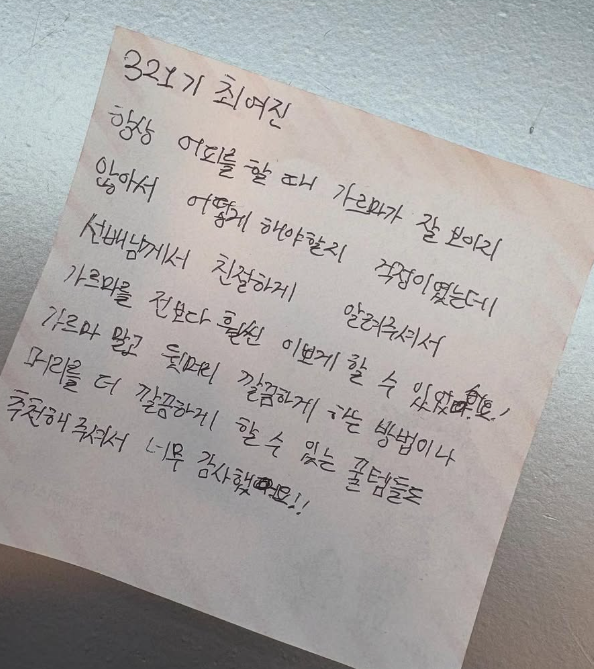 321기 최여진
항상 어피를 할 때 가르마가 잘 보이지
않아서 어떻게 해야할지 걱정이였는데
선배님께서 친절하게 알려주셔서
가르마를 전보다 훨씬 이쁘게 할 수 있었어요!
가르마 말고 뒷머리 깔끔하게 하는 방법이나
머리를 더 깔끔하게 할 수 있는 꿀템들도
추천해 주셔서 너무 감사했어요!!